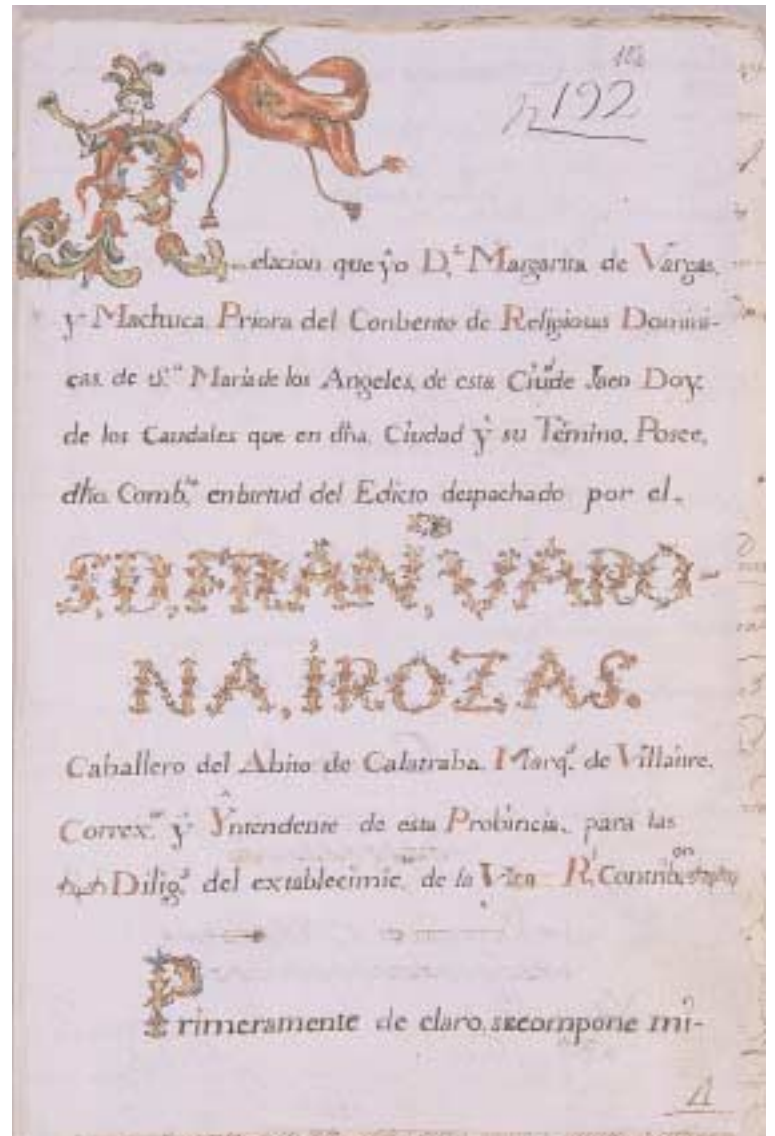 192
Relacion que ÿo D.ª Margarita de Vargas,
y Machuca Priora del Conbento de Religiosas Domini-
cas, de S.ta Maria de los Angeles, de esta Ciud.d de Jaen Doy:
de los Caudales que en dha. Ciudad ÿ su Termino. Posee,
dho. Comb.to enbirtud del Edicto despachado por el,
S.D, FRAN,CO VARO-
NA, ÍROZAS.
Caballero del Abito de Calatraba. Marq.s de Villaiire,
Correx.or ÿ Yntendente de esta Probincia, para las
Dilig.s del extablecimie.to de la Vnica R.l Contrib.on
Primeramente de claro, secompone mi-